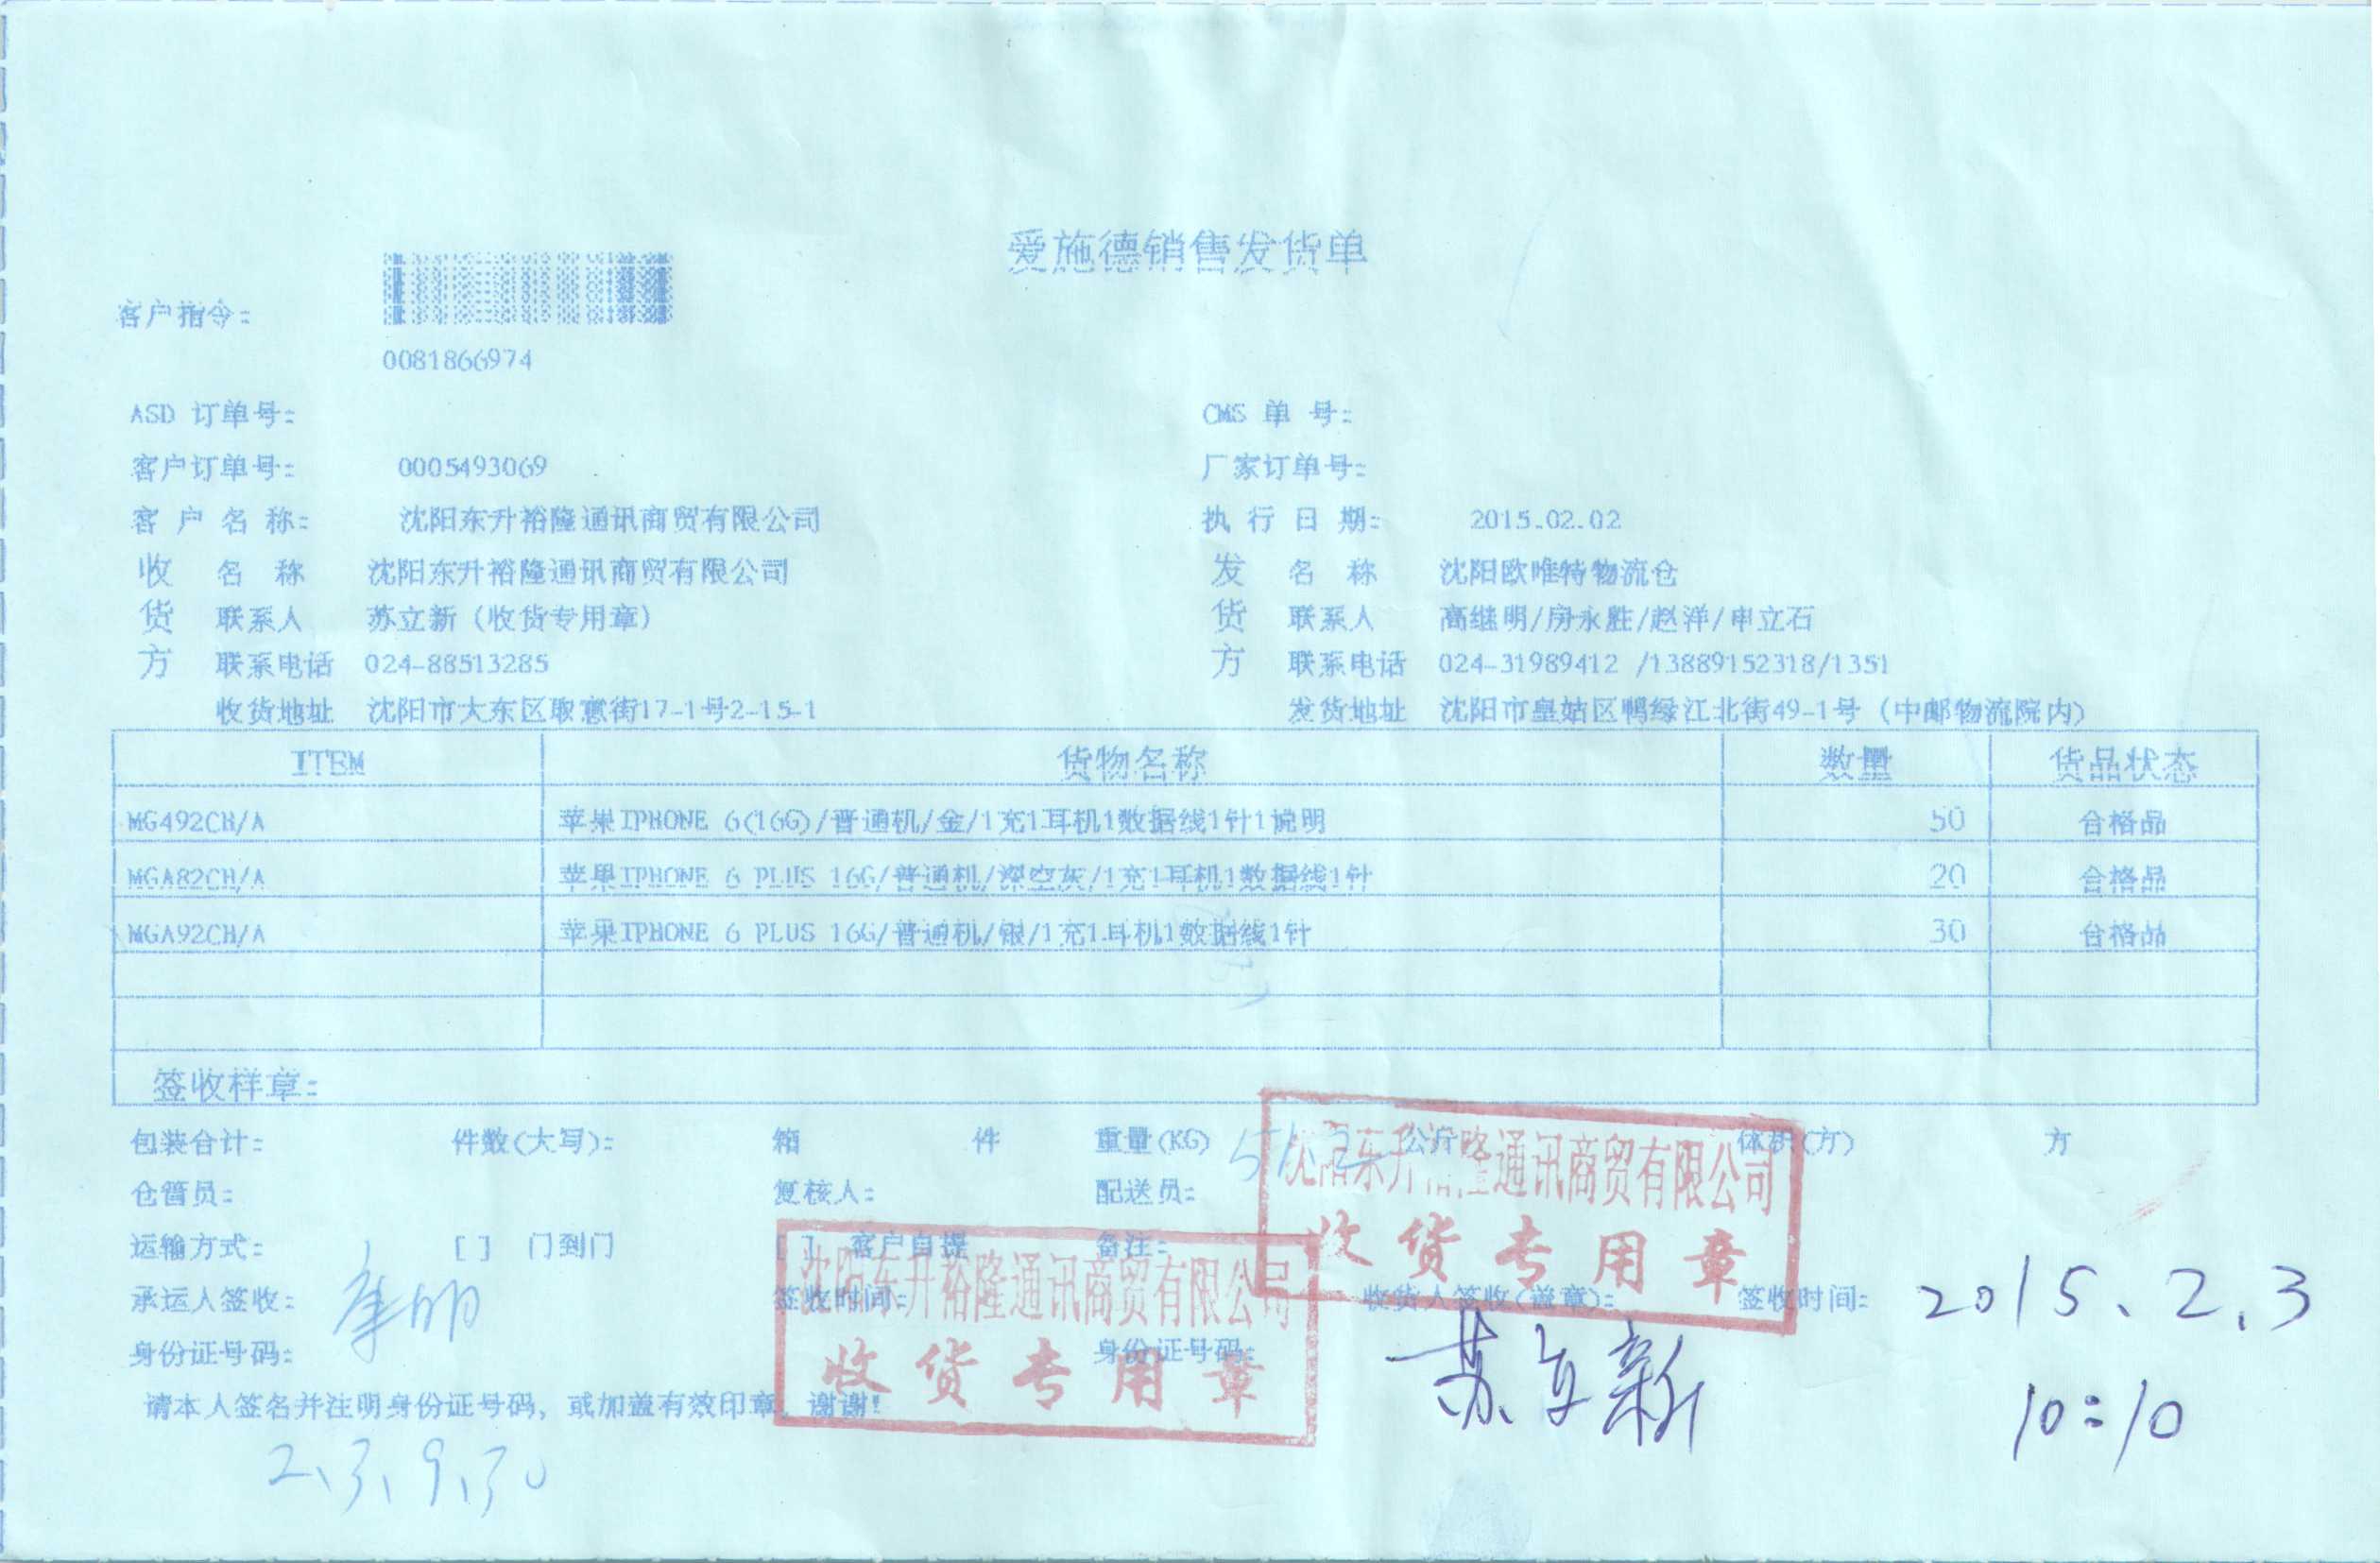 爱施德销售发货单
客户指令:
0081866974
ASD 订单号: CMS 单 号:
客户订单号: 0005493069 厂家订单号:
客 户 名 称: 沈阳东升裕隆通讯商贸有限公司 执 行 日 期: 2015.02.02
收 名 称 沈阳东升裕隆通讯商贸有限公司 发 名 称 沈阳欧唯特物流仓
货 联系人 苏立新(收货专用章) 货 联系人 高继明/房永胜/赵洋/申立石
方 联系电话 024-88513285 方 联系电话 024-31989412 /13889152318/1351
收货地址 沈阳市大东区取意街17-1号2-15-1 发货地址 沈阳市皇姑区鸭绿江北街49-1号(中邮物流院内)
ITEM 货物名称 数量 货品状态
MG492CH/A 苹果IPHONE 6(16G)/普通机/金/1充1耳机1数据线1针1说明 50 合格品
MGA82CH/A 苹果IPHONE 6 PLUS 16G/普通机/深空灰/1充1耳机1数据线1针 20 合格品
MGA92CH/A 苹果IPHONE 6 PLUS 16G/普通机/银/1充1耳机1数据线1针 30 合格品
签收样章:
包装合计: 件数(大写): 箱 件 重量(KG) 公斤 体积(方) 方
仓管员: 复核人: 配送员:
沈阳东升裕隆通讯商贸有限公司
收货专用章
运输方式: [ ] 门到门 [ ] 客户自提 备注:
沈阳东升裕隆通讯商贸有限公司
收货专用章
承运人签收: 签收时间: 收货人签收(盖章): 签收时间: 2015.2.3
身份证号码: 身份证号码: 苏立新
10:10
请本人签名并注明身份证号码, 或加盖有效印章, 谢谢!
2、3、9、30